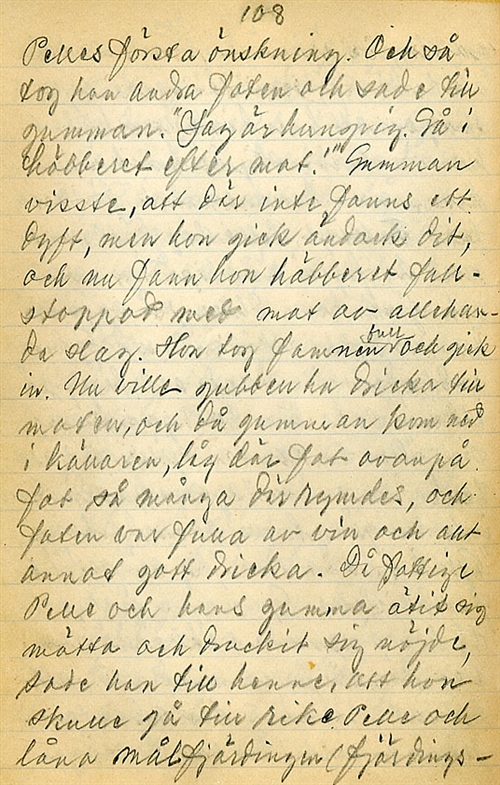 108
Pelles första önskning. Och så
tog han andra foten och sade till
gumman. "Jag är hungrig. Gå i
häbberet efter mat!" Gumman
visste, att där inte fanns ett
dyft, men hon gick ändock dit,
och nu fann hon häbberet full-
stoppad med mat av allehan-
da slag. Hon tog famnen full och gick
in. Nu ville gubben ha dricka till
maten, och då gumman kom ned
i källaren, låg där fat ovanpå
fat så många där rymdes, och
faten var fulla av vin och allt
annat gott dricka. Då fattige
Pelle och hans gumma ätit sig
mätta och druckit sig nöjde,
sade han till henne, att hon
skulle gå till rike Pelle och
låna målfjärdingen (fjärdings-